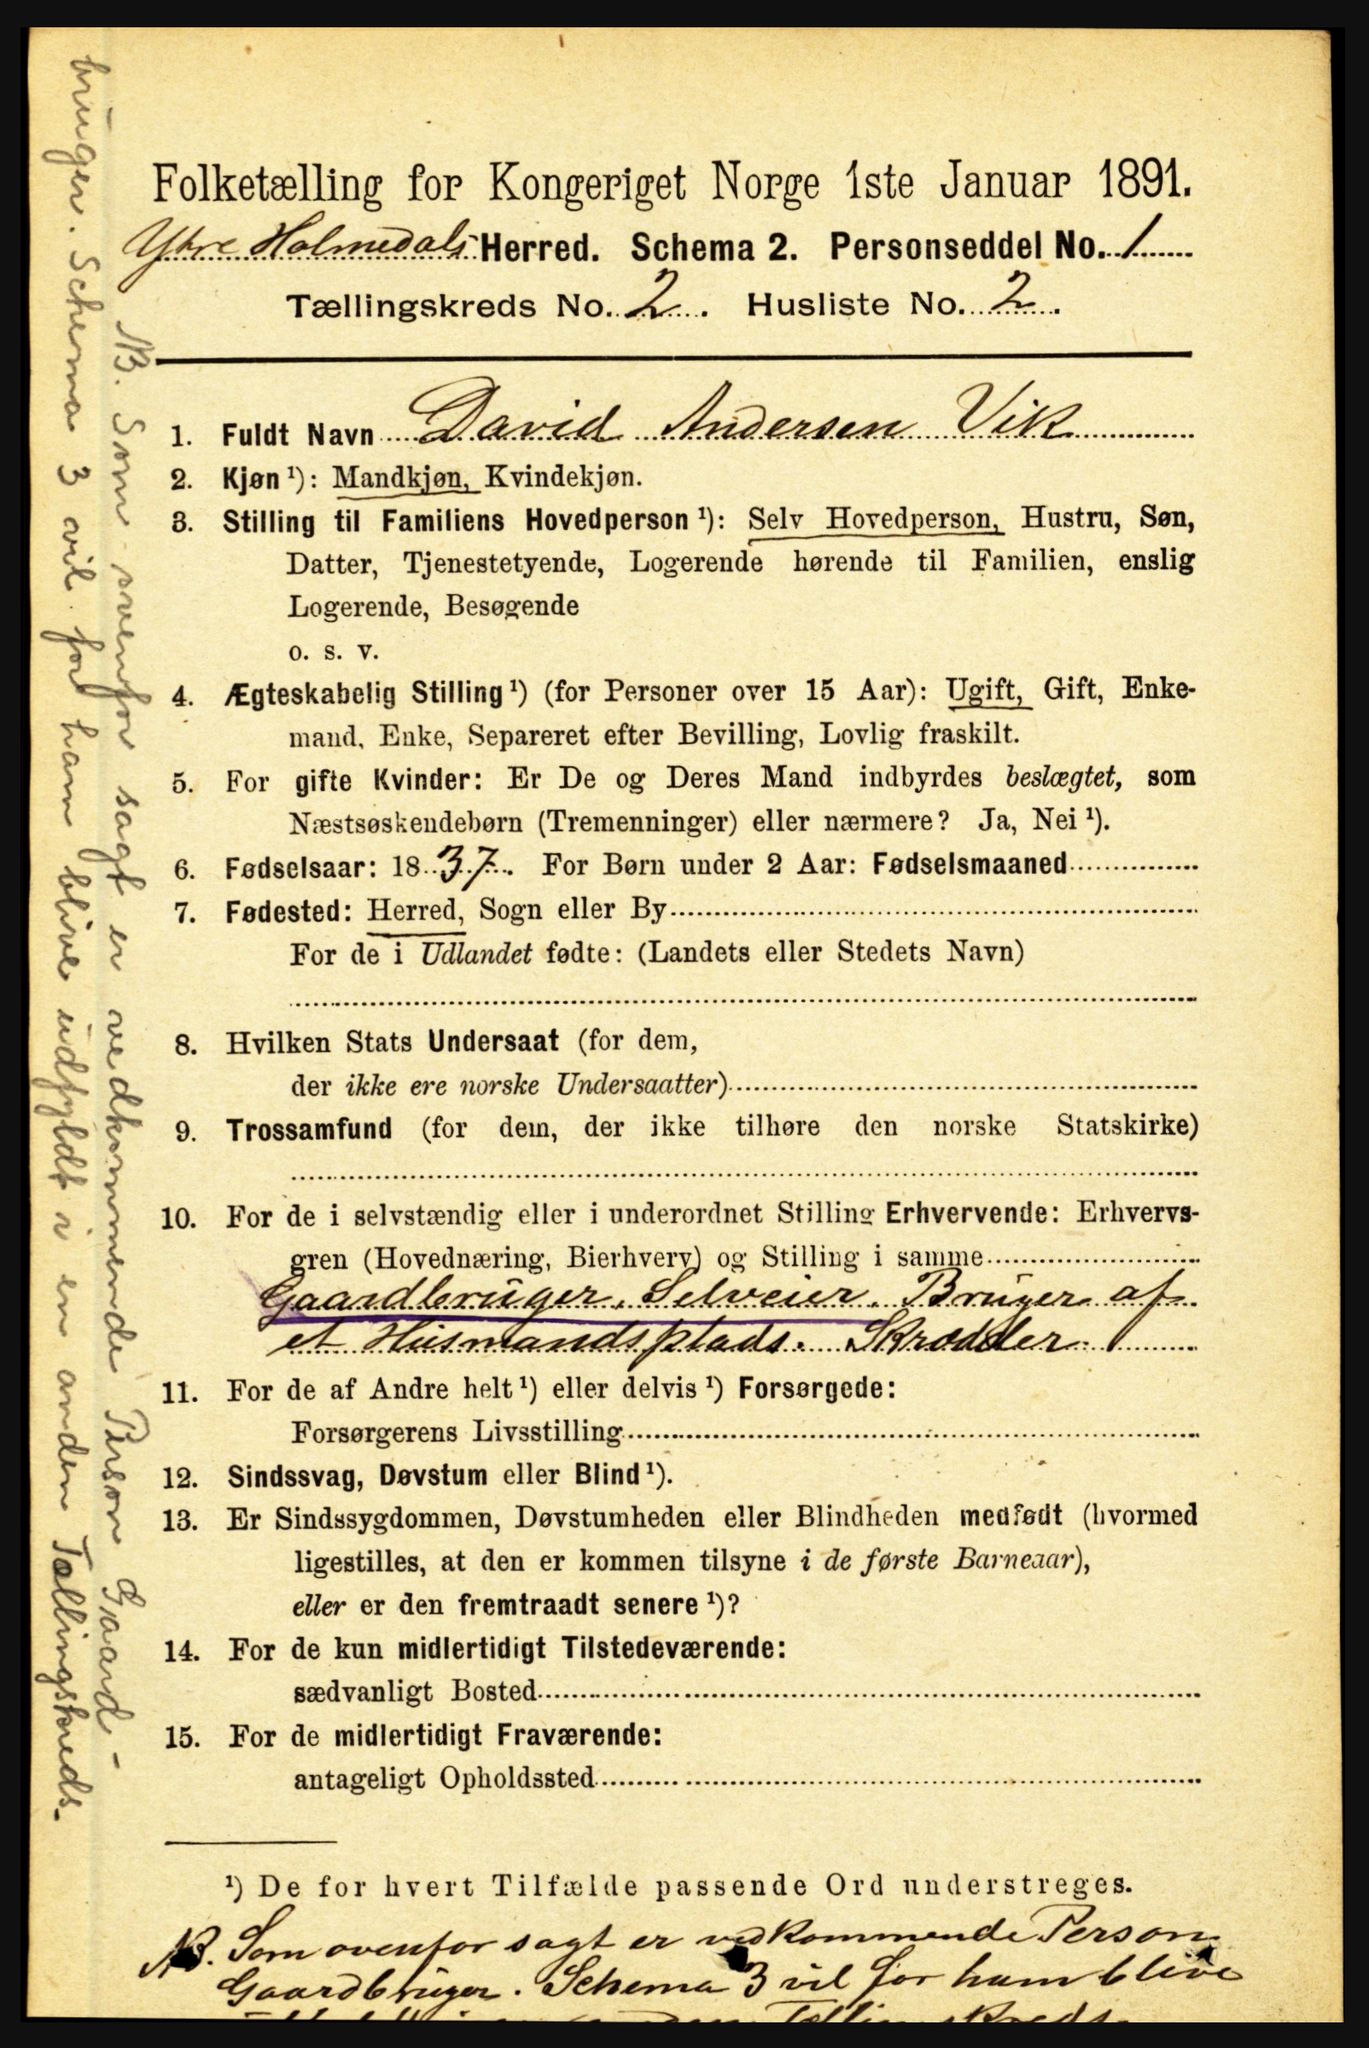 Folketælling for Kongeriget Norge 1ste Januar 1891.
Ytre Holmedals Herred. Schema 2. Personseddel No. 1
Tællingskreds No. 2. Husliste No. 2.
1. Fuldt Navn David Andersen Vik
2. Kjøn ¹): Mandkjøn, Kvindekjøn.
3. Stilling til Familiens Hovedperson ¹): Selv Hovedperson, Hustru, Søn,
Datter, Tjenestetyende, Logerende hørende til Familien, enslig
Logerende, Besøgende
o. s. v.
4. Ægteskabelig Stilling ¹) (for Personer over 15 Aar): Ugift, Gift, Enke-
mand, Enke, Separeret efter Bevilling, Lovlig fraskilt.
5. For gifte Kvinder: Er De og Deres Mand indbyrdes beslægtet, som
Næstsøskendebørn (Tremenninger) eller nærmere? Ja, Nei ¹).
6. Fødselsaar: 1837. For Børn under 2 Aar: Fødselsmaaned
7. Fødested: Herred, Sogn eller By
For de i Udlandet fødte: (Landets eller Stedets Navn)
8. Hvilken Stats Undersaat (for dem,
der ikke ere norske Undersaatter)
9. Trossamfund (for dem, der ikke tilhøre den norske Statskirke)
10. For de i selvstændig eller i underordnet Stilling Erhvervende: Erhvervs-
gren (Hovednæring, Bierhverv) og Stilling i samme
Gaardbruger, Selveier. Bruger af
et Husmandsplads. Skrædder.
11. For de af Andre helt ¹) eller delvis ¹) Forsørgede:
Forsørgerens Livsstilling
12. Sindssvag, Døvstum eller Blind ¹).
13. Er Sindssygdommen, Døvstumheden eller Blindheden medfødt (hvormed
ligestilles, at den er kommen tilsyne i de første Barneaar),
eller er den fremtraadt senere ¹)?
14. For de kun midlertidigt Tilstedeværende:
sædvanligt Bosted
15. For de midlertidigt Fraværende:
antageligt Opholdssted
¹) De for hvert Tilfælde passende Ord understreges.
NB. Som ovenfor sagt er vedkommende Person
Gaardbruger. Schema 3 vil for ham blive
NB. Som ovenfor sagt er vedkommende Person Gaard-
bruger. Schema 3 vil for ham blive udfyldt i en anden Tællingskreds.